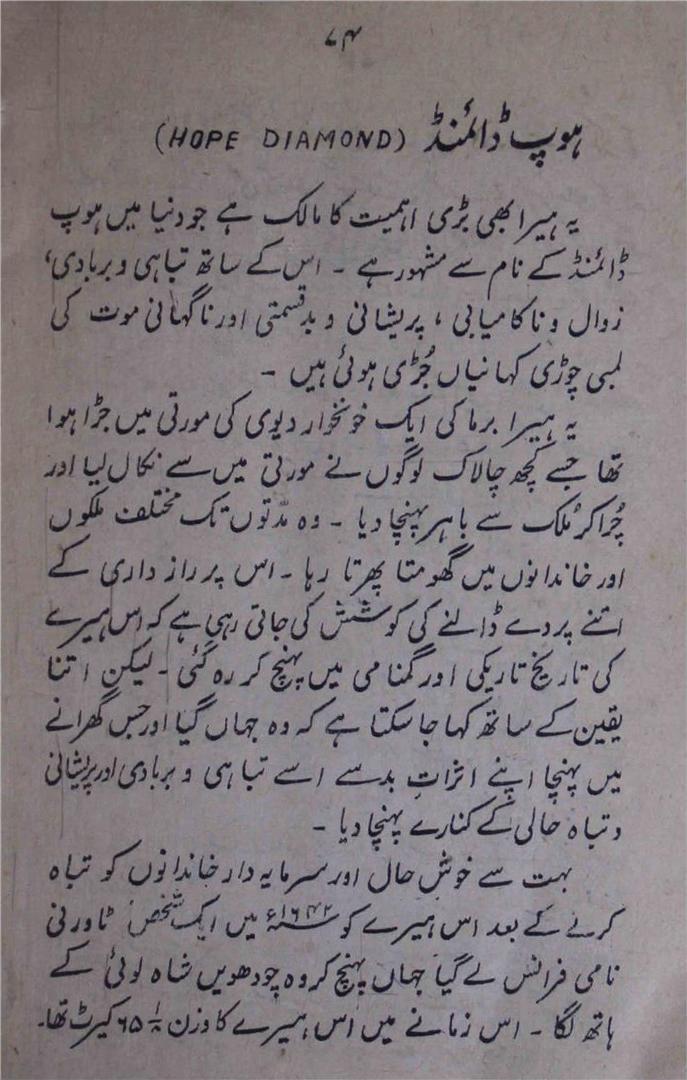 ۷۴
ہوپ ڈائمنڈ (HOPE DIAMOND)
یہ ہیرا بھی بڑی اہمیت کا مالک ہے جو دنیا میں ہوپ
ڈائمنڈ کے نام سے مشہور ہے ۔ اس کے ساتھ تباہی و بربادی،
زوال و ناکامیابی ، پریشانی و بدقسمتی اور ناگہانی موت کی
لمبی چوڑی کہانیاں جُڑی ہوئی ہیں ۔
یہ ہیرا برما کی ایک خونخوار دیوی کی مورتی میں جڑا ہوا
تھا جسے کچھ چالاک لوگوں نے مورتی میں سے نکال لیا اور
چُرا کر مُلک سے باہر پہنچا دیا ۔ وہ مدّتوں تک مختلف ملکوں
اور خاندانوں میں گھومتا پھرتا رہا ۔ اس پر راز داری کے
اتنے پردے ڈالنے کی کوشش کی جاتی رہی ہے کہ اس ہیرے
کی تاریخ تاریکی اور گمنامی میں پہنچ کر رہ گئی ۔ لیکن اتنا
یقین کے ساتھ کہا جا سکتا ہے کہ وہ جہاں گیا اور جس گھرانے
میں پہنچا اپنے اثراتِ بد سے اسے تباہی و بربادی اور پریشانی
و تباہ حالی کے کنارے پہنچا دیا ۔
بہت سے خوش حال اور سرمایہ دار خاندانوں کو تباہ
کرنے کے بعد اس ہیرے کو ۱۶۴۲ء میں ایک شخص ٹاورنی
نامی فرانس لے گیا جہاں پہنچ کر وہ چودھویں شاہ لوئی کے
ہاتھ لگا ۔ اس زمانے میں اس ہیرے کا وزن کیرٹ تھا۔